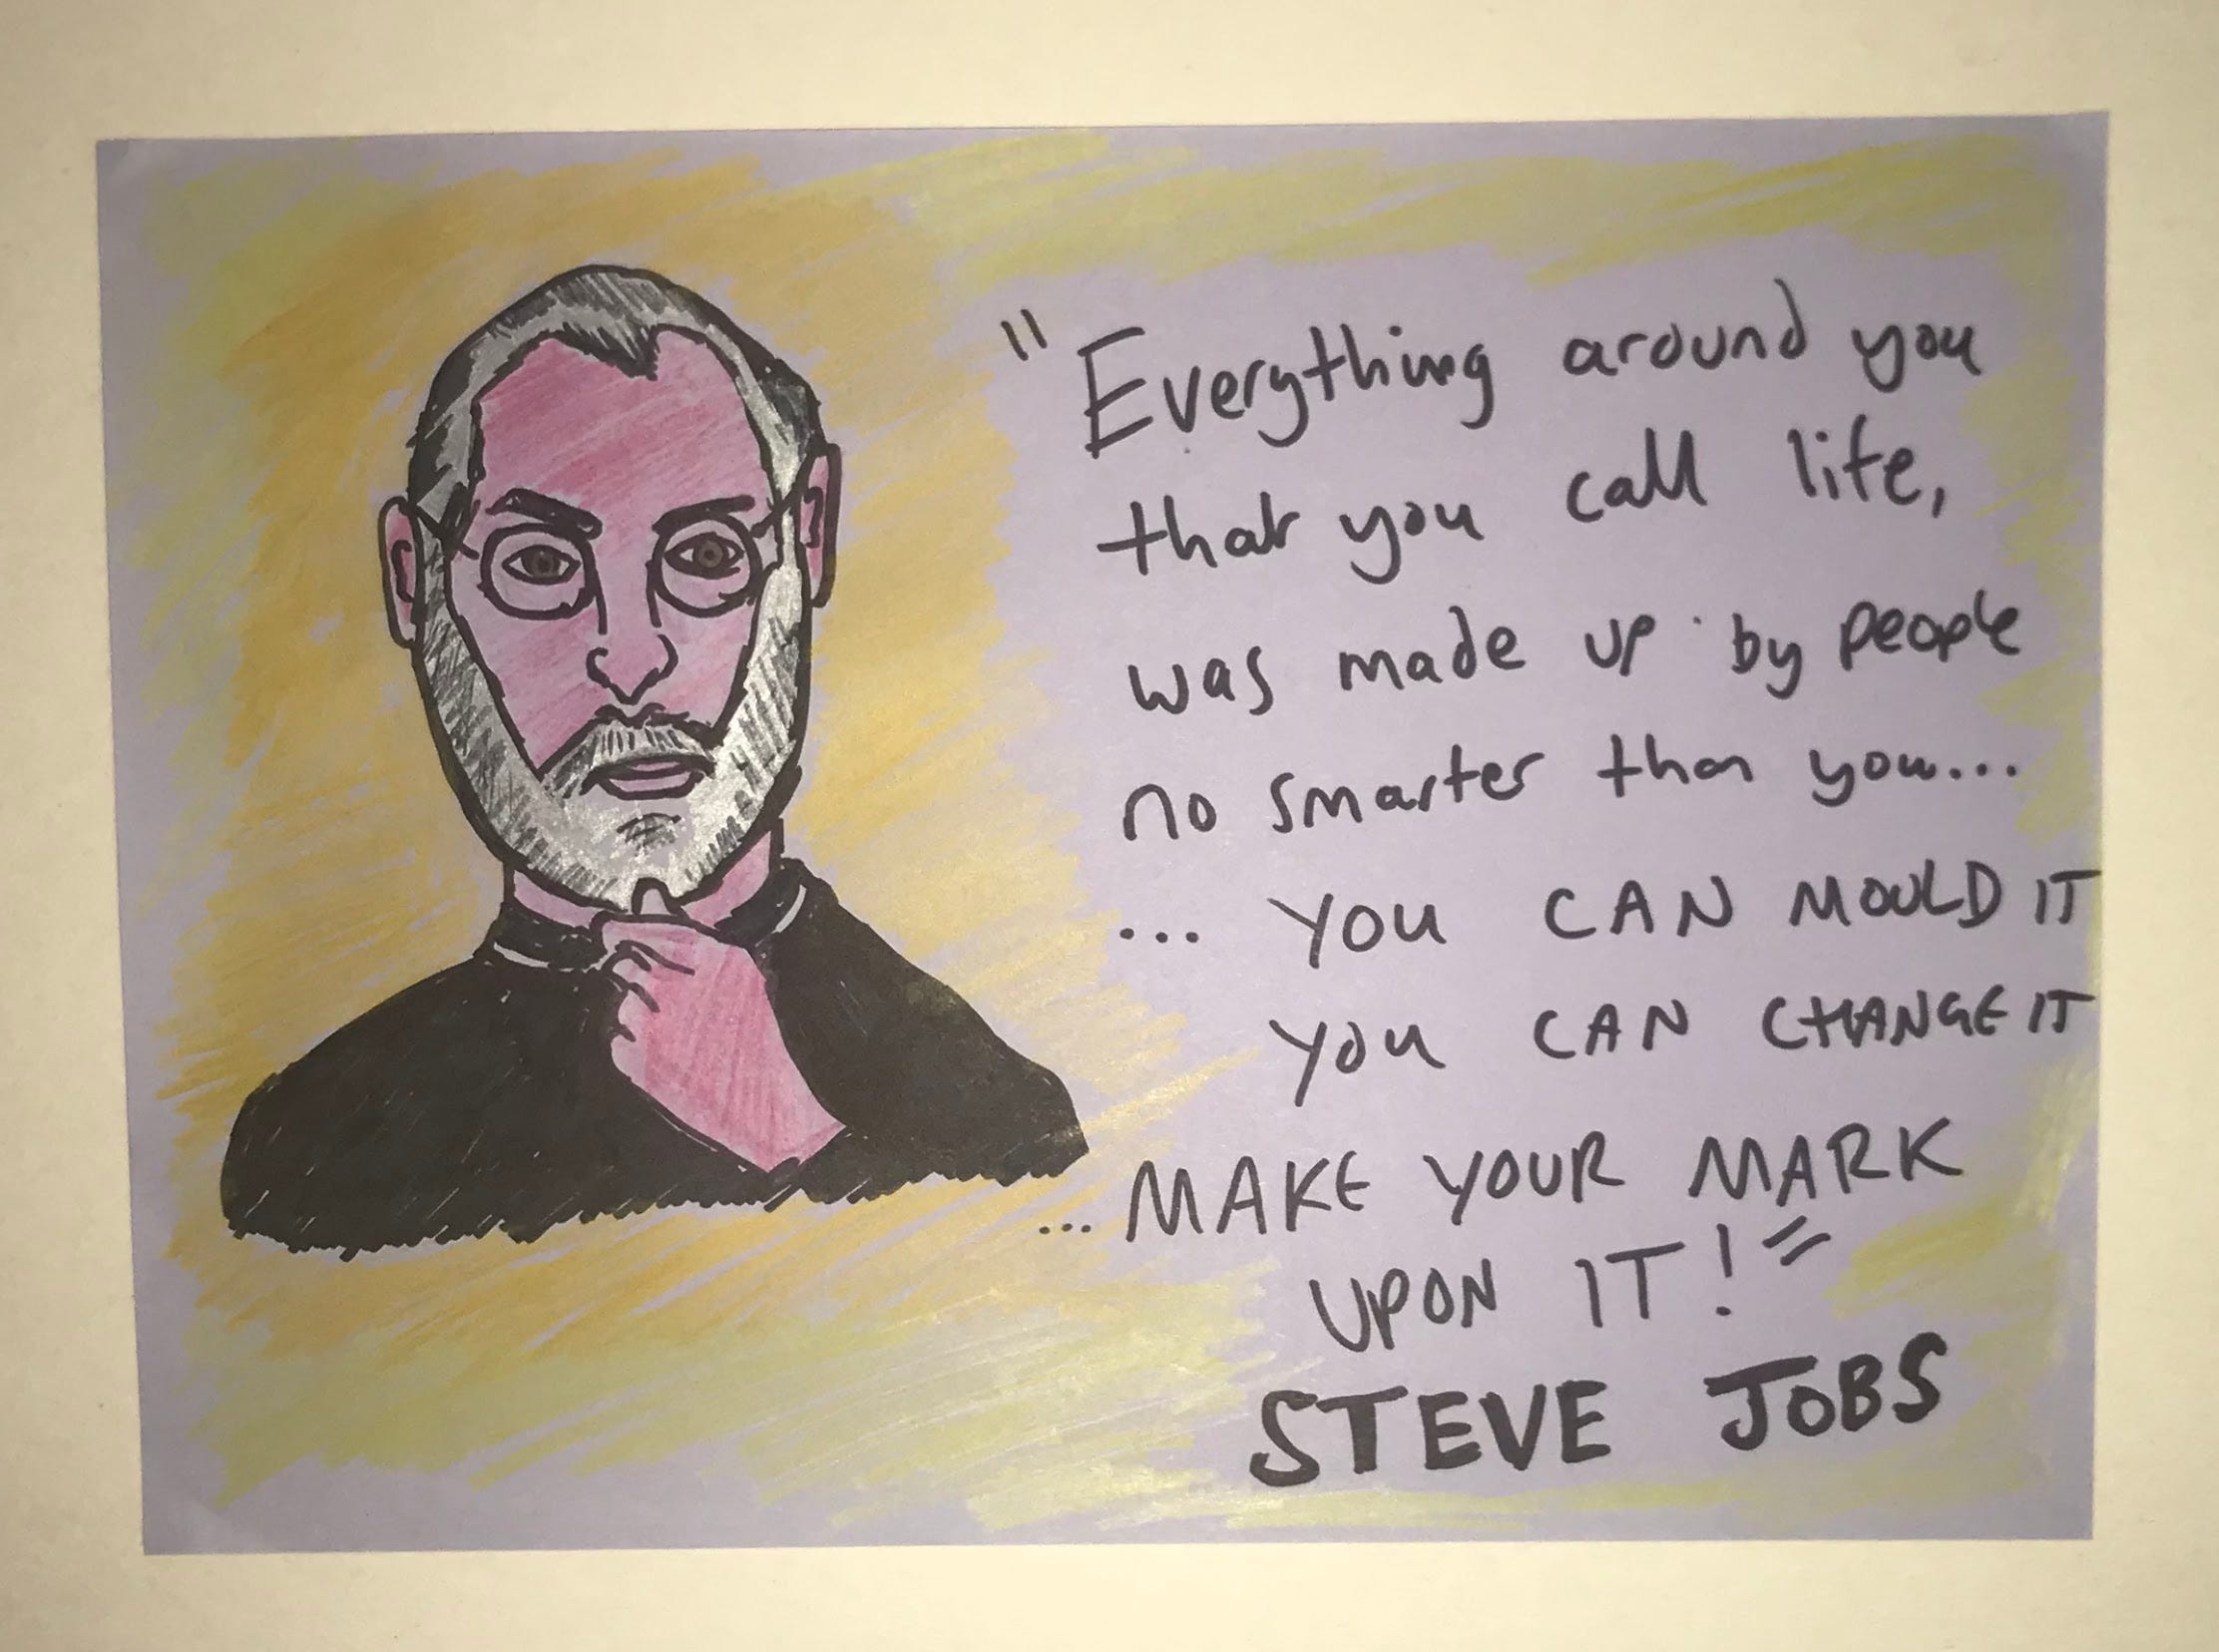 "Everything around you
that you call life,
was made up by people
no smarter than you...
... YOU CAN MOULD IT
YOU CAN CHANGE IT
... MAKE YOUR MARK
UPON IT!"
STEVE JOBS